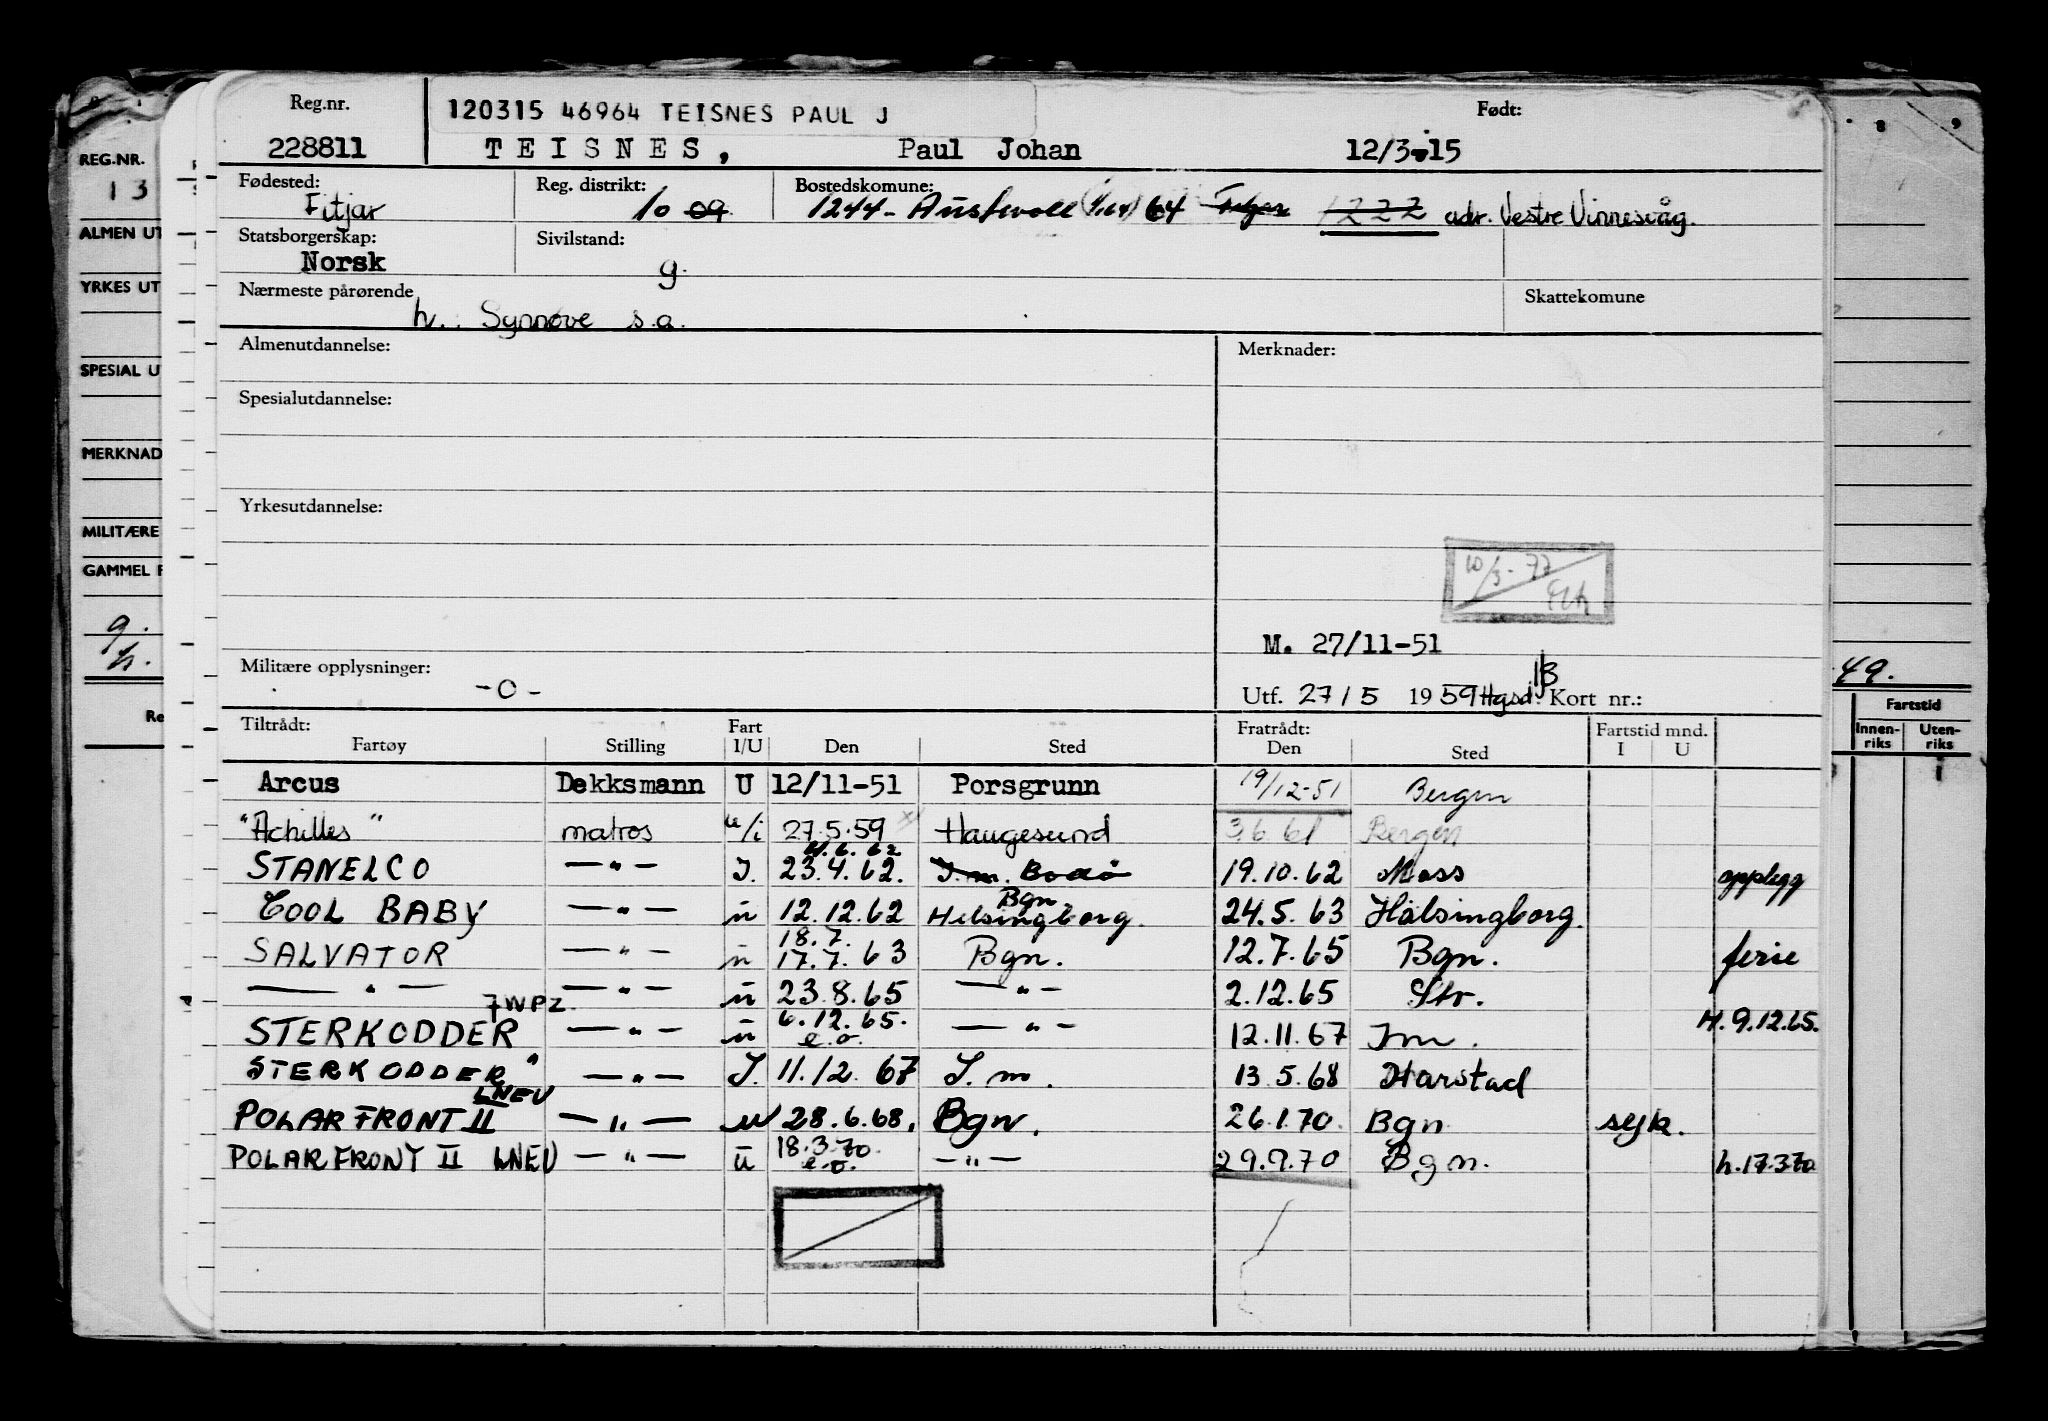 Reg.nr.
120315 46964 TEISNES PAUL J
Født:
228811 TEISNES, Paul Johan 12/3-15
Fødested: Fitjar
Reg. distrikt: 10 09
Bostedskomune: 1244 - Austevoll 64 1222 adr. Vestre Vinnesvåg.
Statsborgerskap: Norsk
Sivilstand: g.
Nærmeste pårørende h. Synnøve s.a.
Skattekomune
Almenutdannelse:
Merknader:
Spesialutdannelse:
Yrkesutdannelse:
10/3-77
M. 27/11-51
Militære opplysninger: -0-
Utf. 27/5 1959 Hgsd. Kort nr.:
Tiltrådt: Fart Fratrådt: Fartstid mnd.
Fartøy Stilling I/U Den Sted Den Sted I U
Arcus Dekksmann U 12/11-51 Porsgrunn 19/12-51 Bergen
"Achilles" matros u/i 27.5.59 Haugesund 3.6.61 Bergen
STANELCO —"— I. 23.4.62. I.m. Bodö 19.10.62 Moss opplegg
COOL BABY —"— u 12.12.62 Bgn Helsingborg. 24.5.63 Hälsingborg.
SALVATOR —"— u 18.7. 17.7.63 Bgn. 12.7.65 Bgn. ferie
—"— —"— u 23.8.65 —"— 2.12.65 Str.
7WPZ.
STERKODDER —"— u 6.12.65. e.o. —"— 12.11.67 Im. H.9.12.65.
STERKODDER" —"— I. 11.12.67 I.m. 13.5.68 Harstad
LNEU
POLARFRONT II —"— u 28.6.68. Bgn. 26.1.70. Bgn syk.
POLARFRONT II LNEU —"— u 18.3.70. e.o. —"— 29.9.70 Bgn. h.17.3.70
REG.NR.
13
ALMEN UT
YRKES UT
SPESIAL U
MERKNAD
MILITÆRE
GAMMEL F
g.
h.
Re
8 9
49.
Fartstid
Innen-riks Uten-riks